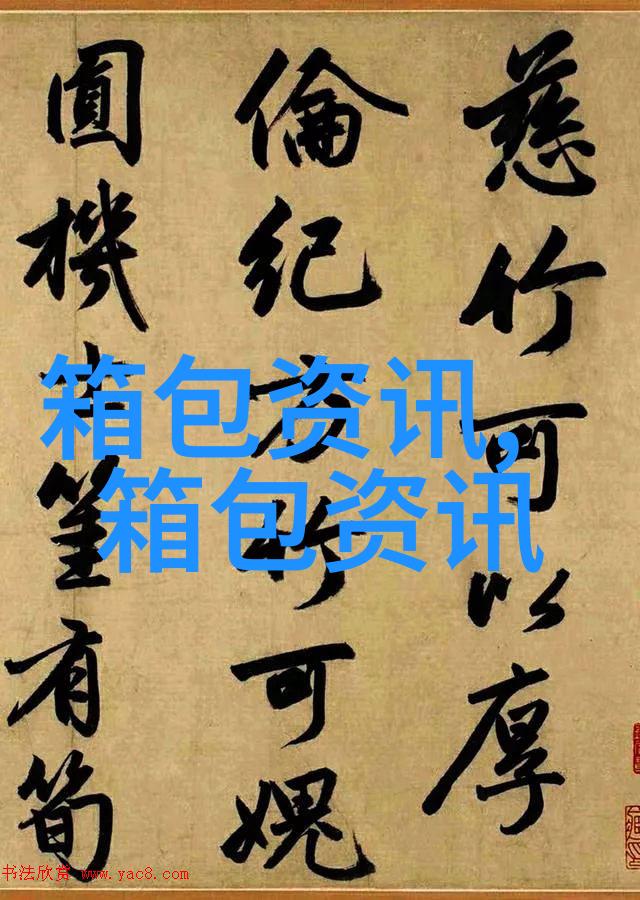 慈竹可以厚
倫紀方竹可媿
圓機士有筍
箱包资讯,
箱包资讯
书法欣赏 www.yac8.com